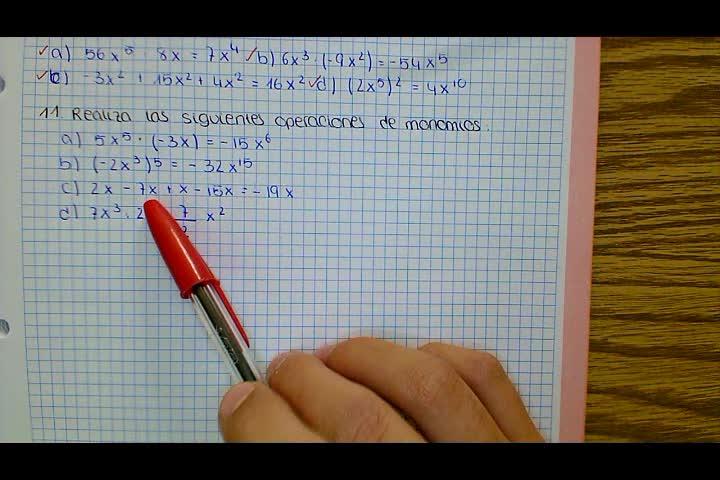 a) 56x⁵ : 8x = 7x⁴ b) 6x³ · (-9x²) = -54x⁵
c) -3x² + 15x² + 4x² = 16x² d) (2x⁵)² = 4x¹⁰
11 Realiza las siguientes operaciones de monomios.
a) 5x⁵ · (-3x) = -15x⁶
b) (-2x³)⁵ = -32x¹⁵
c) 2x - 7x + x - 15x = -19x
d) 7x³ : 2 7/2 x²